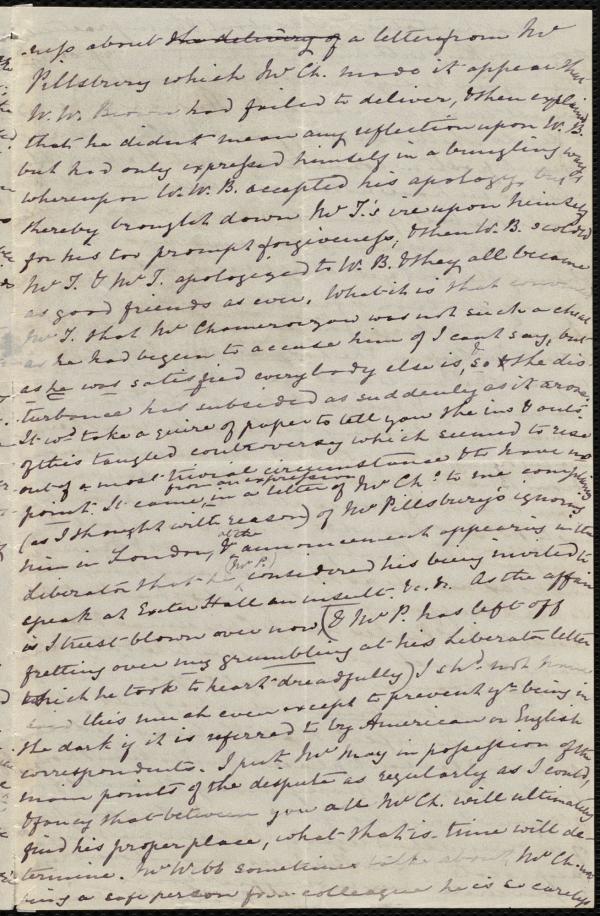 ness about the delivery of a letter from Mr
Pillsbury which Mr Ch. made it appear that
W. W. Brown had failed to deliver, & then explained
that he didn't mean any reflection upon W. B.
but had only expressed himself in a bungling way,
whereupon W. W. B. accepted his apology, but
thereby brought down Mr T.'s ire upon himself
for his too prompt forgiveness, & then W. B. scolded
Mr T. & Mr T. apologized to W. B. & they all became
as good friends as ever. What it is that convinced
Mr T. that Mr Chamerovzow was not such a cheat
as he had begun to accuse him of I can't say, but
as he was satisfied everybody else is, & so the dis-
turbance has subsided as suddenly as it arose.
It wd take a quire of paper to tell you the ins & outs
of this tangled controversy which seemed to rise
out of a most trivial circumstance & to have no
point. It came from an expression in a letter of Mr Ch. to me complaining
(as I thought with reason) of Mr Pillsbury's ignoring
him in London, & at the announcement appearing in the
Liberator that he (Mr P.) considered his being invited to
speak at Exeter Hall an insult &c. &c. As the affair
is I trust blown over now (& Mr P. has left off
fretting over my grumbling at his Liberator letter
which he took to heart dreadfully) I shd not have
this much even except to prevent yr being in
the dark if it is referred to by American or English
correspondents. I put Mr May in possession of the
main points of the dispute as regularly as I could,
& fancy that between you all Mr Ch. will ultimately
find his proper place, what that is time will de-
termine. Mr Webb sometimes talks about Mr Ch. not
being a safe person for a colleague he is so careless